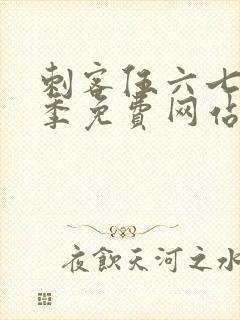 刺客伍六七
季免費网佔
夜飲天河之水